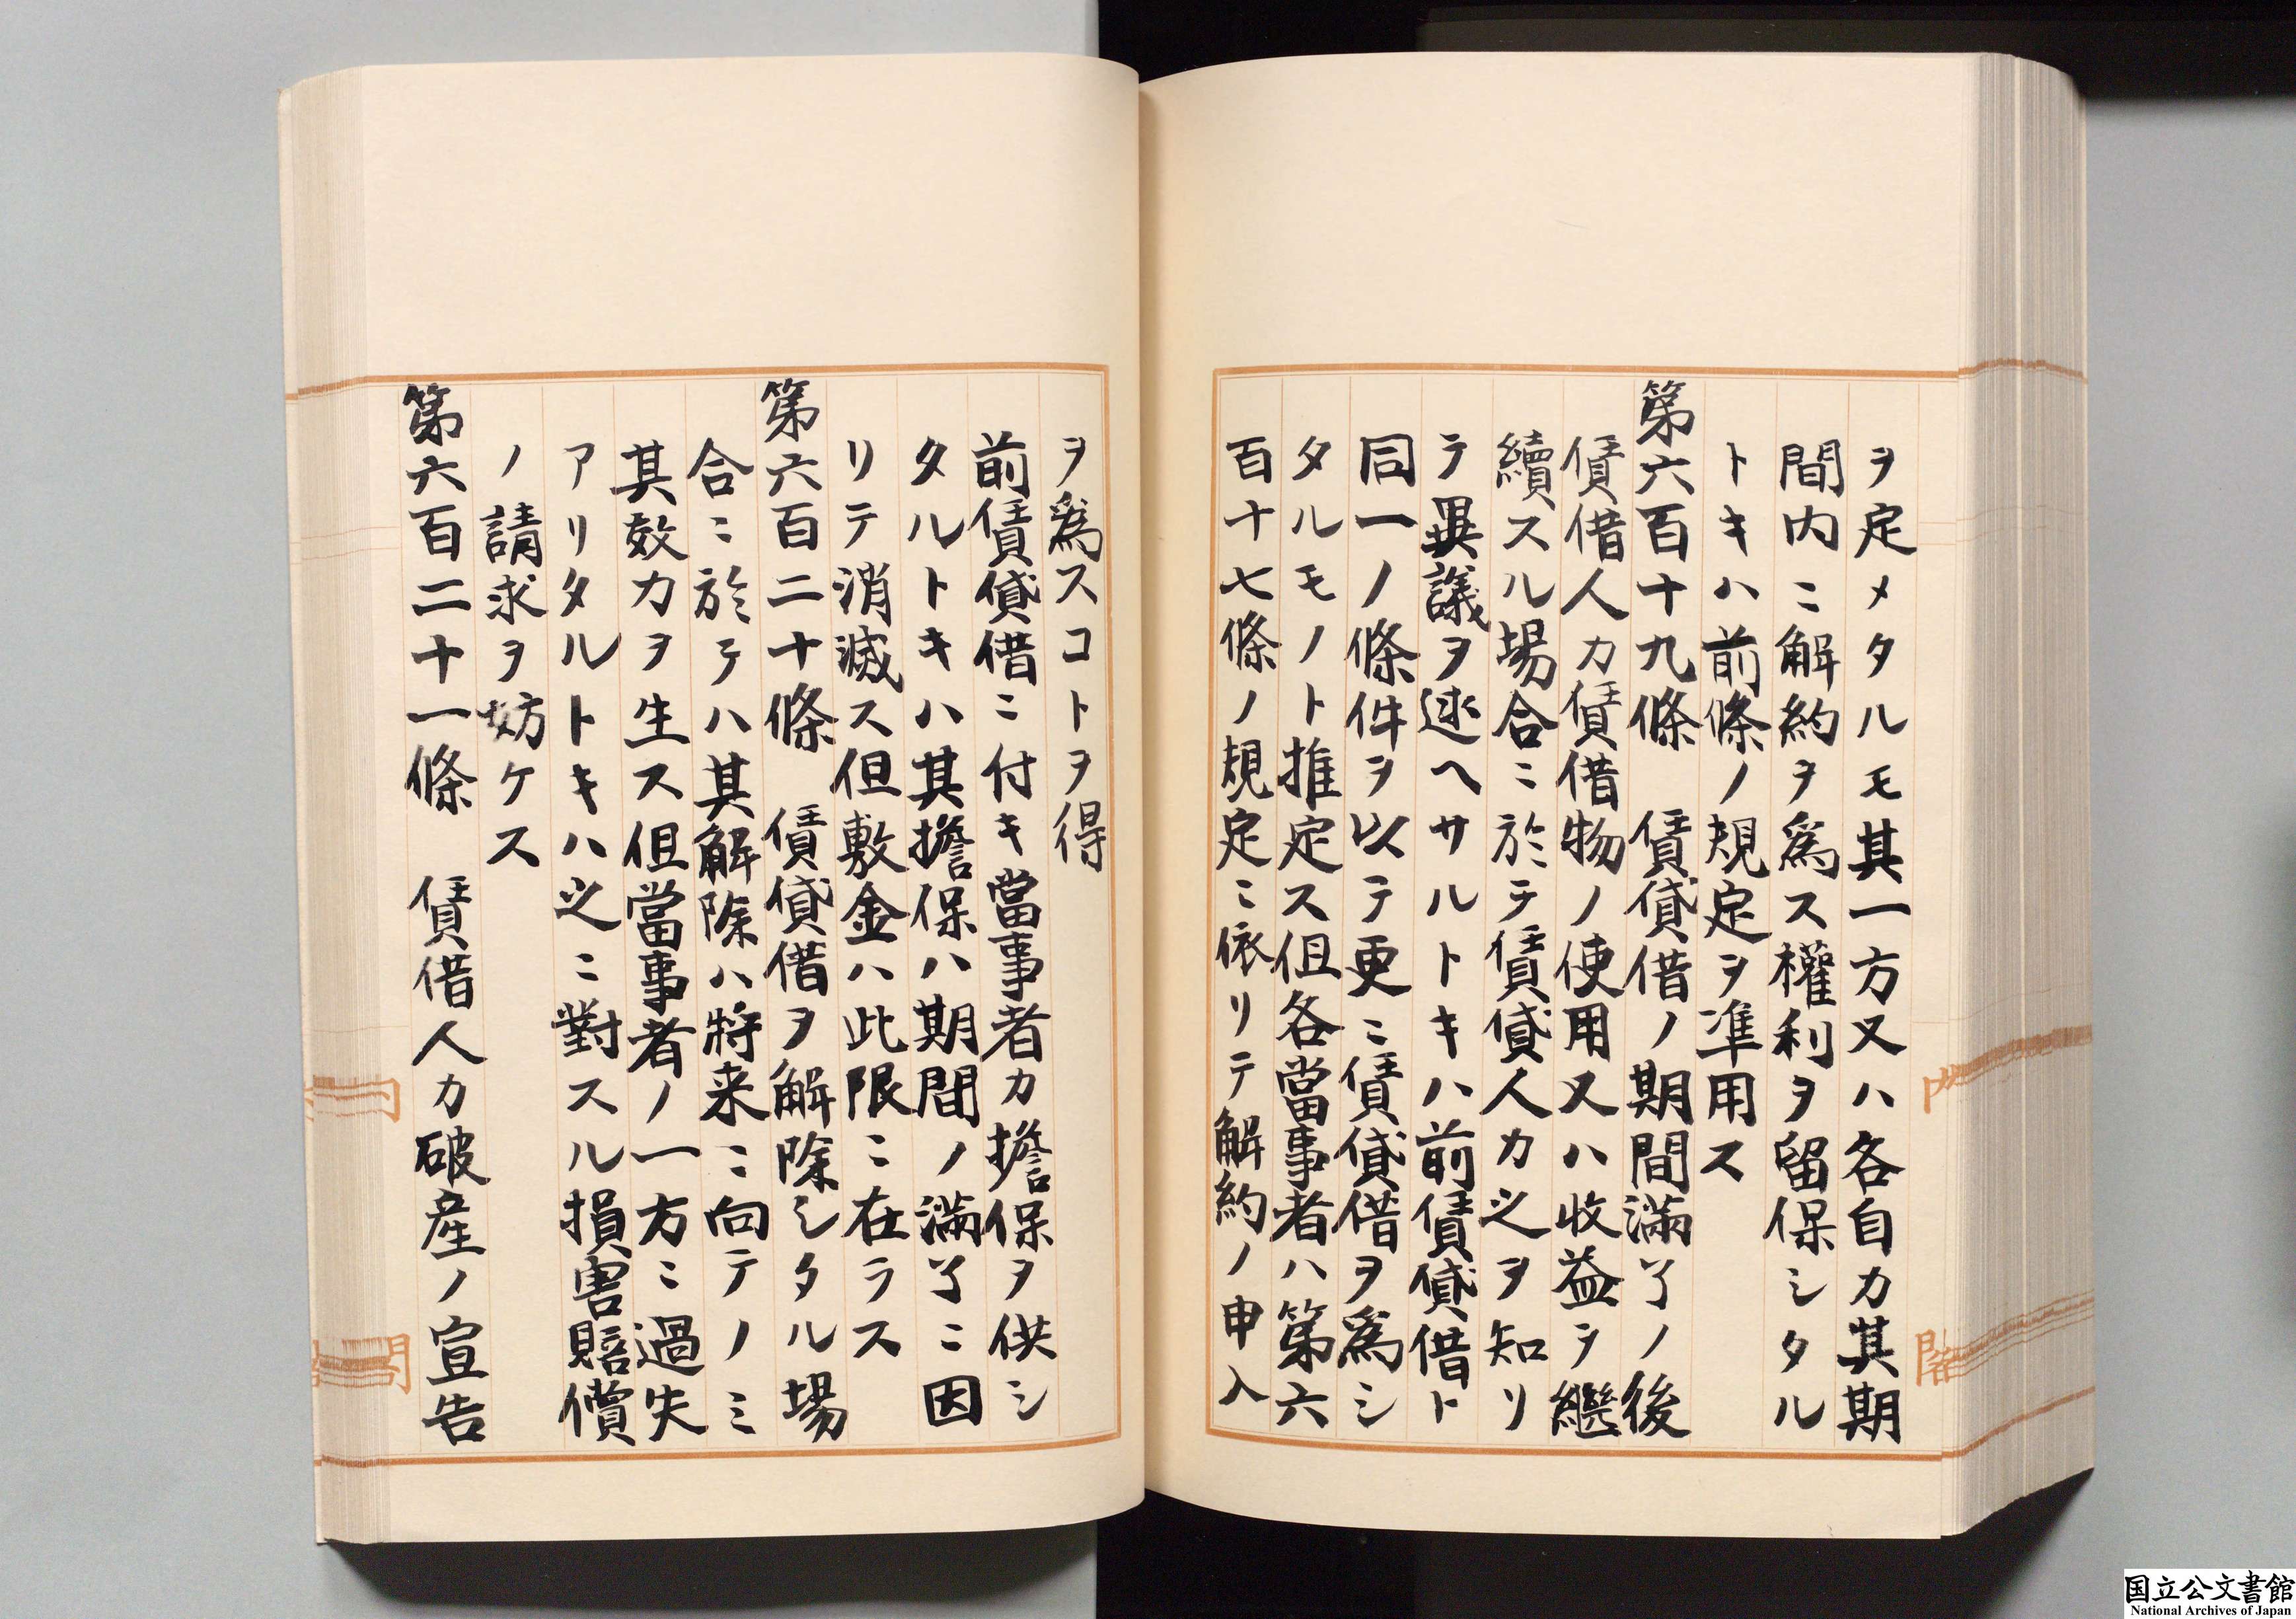 ヲ定メタルモ其一方又ハ各自カ其期
間内ニ解約ヲ爲ス權利ヲ留保シタル
トキハ前條ノ規定ヲ準用ス
第六百十九條　賃貸借ノ期間滿了ノ後
賃借人カ賃借物ノ使用又ハ收益ヲ繼
續スル場合ニ於テ賃貸人カ之ヲ知リ
テ異議ヲ述ヘサルトキハ前賃貸借ト
同一ノ條件ヲ以テ更ニ賃貸借ヲ爲シ
タルモノト推定ス但各當事者ハ第六
百十七條ノ規定ニ依リテ解約ノ申入
ヲ爲スコトヲ得
前賃貸借ニ付キ當事者カ擔保ヲ供シ
タルトキハ其擔保ハ期間ノ滿了ニ因
リテ消滅ス但敷金ハ此限ニ在ラス
第六百二十條　賃貸借ヲ解除シタル場
合ニ於テハ其解除ハ將来ニ向テノミ
其效力ヲ生ス但當事者ノ一方ニ過失
アリタルトキハ之ニ對スル損害賠償
ノ請求ヲ妨ケス
第六百二十一條　賃借人カ破産ノ宣告
内
閣
国立公文書館
National Archives of Japan